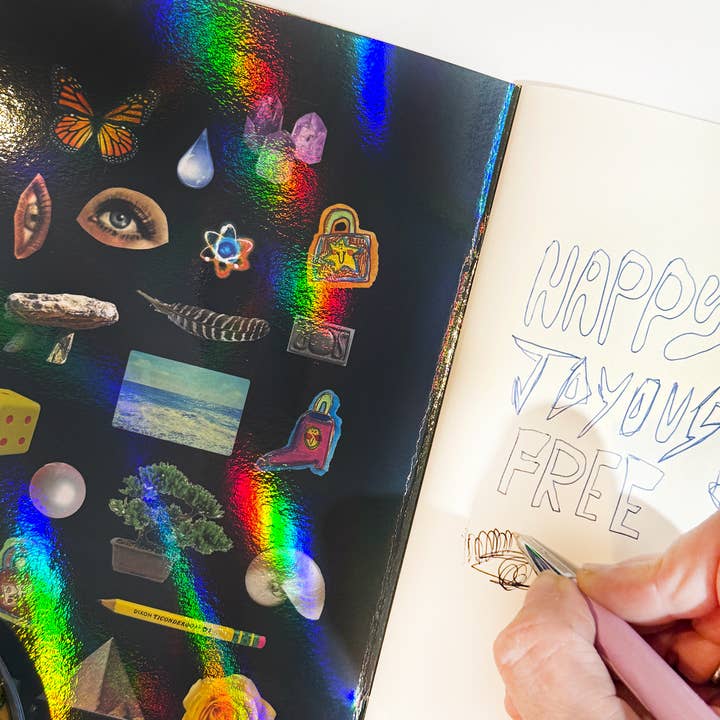 DIXON TICONDEROGA
HAPPY
JOYOUS
FREE